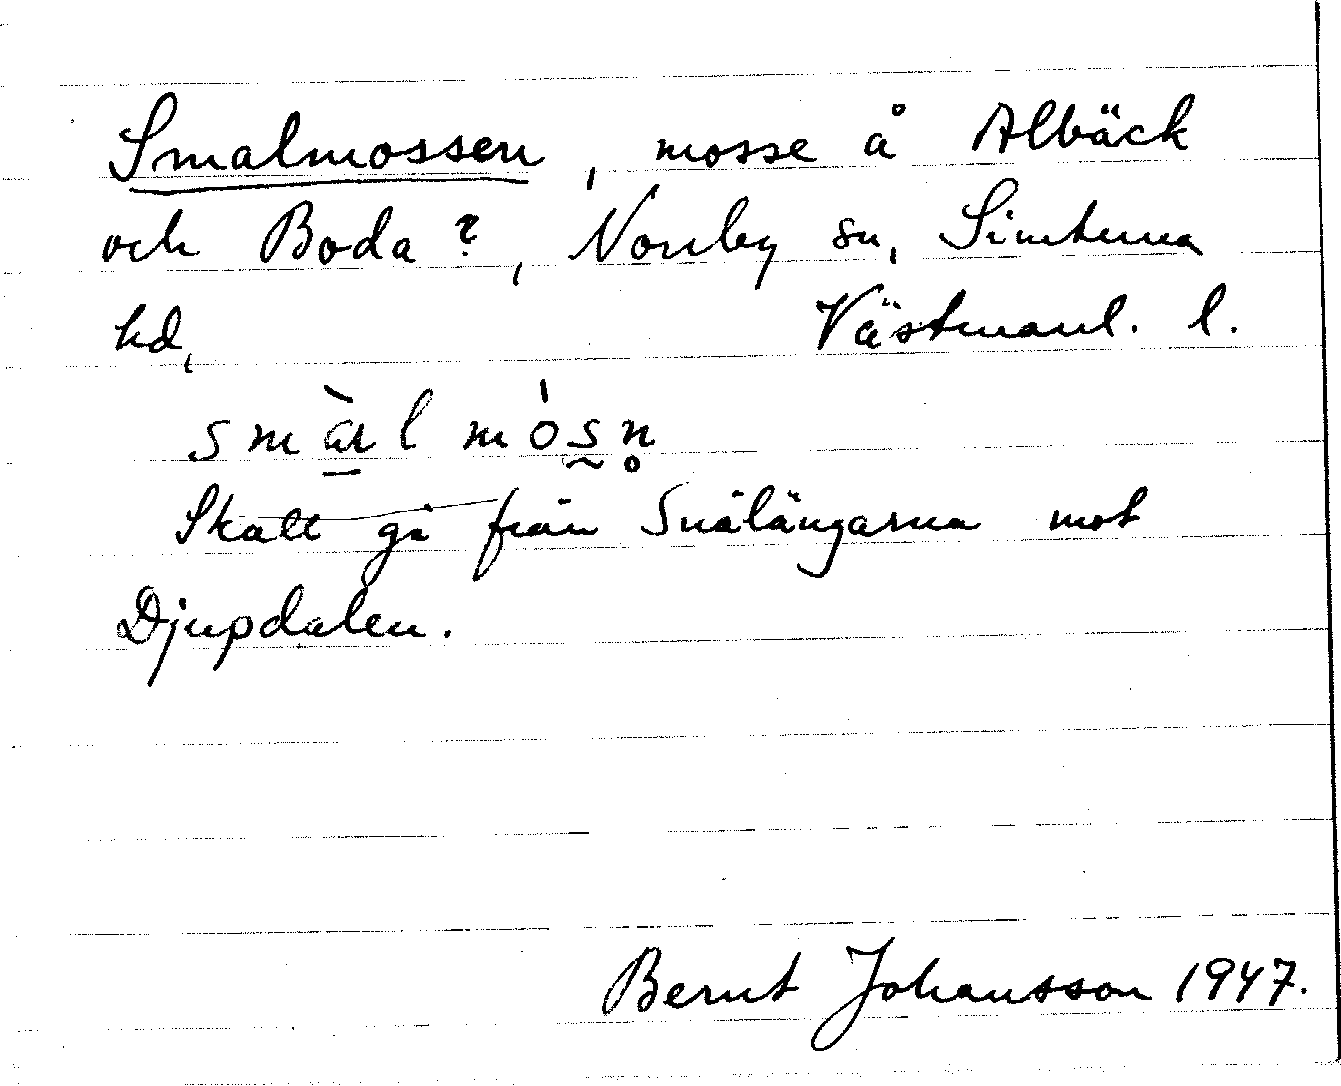 Smalmossen, mosse å Albäck
och Boda?, Norrby sn, Simtuna
hd, Västmanl. l.
smàl mósn̥
Skall gå från Snålängarna mot
Djupdalen.
Bernt Johansson 1947.